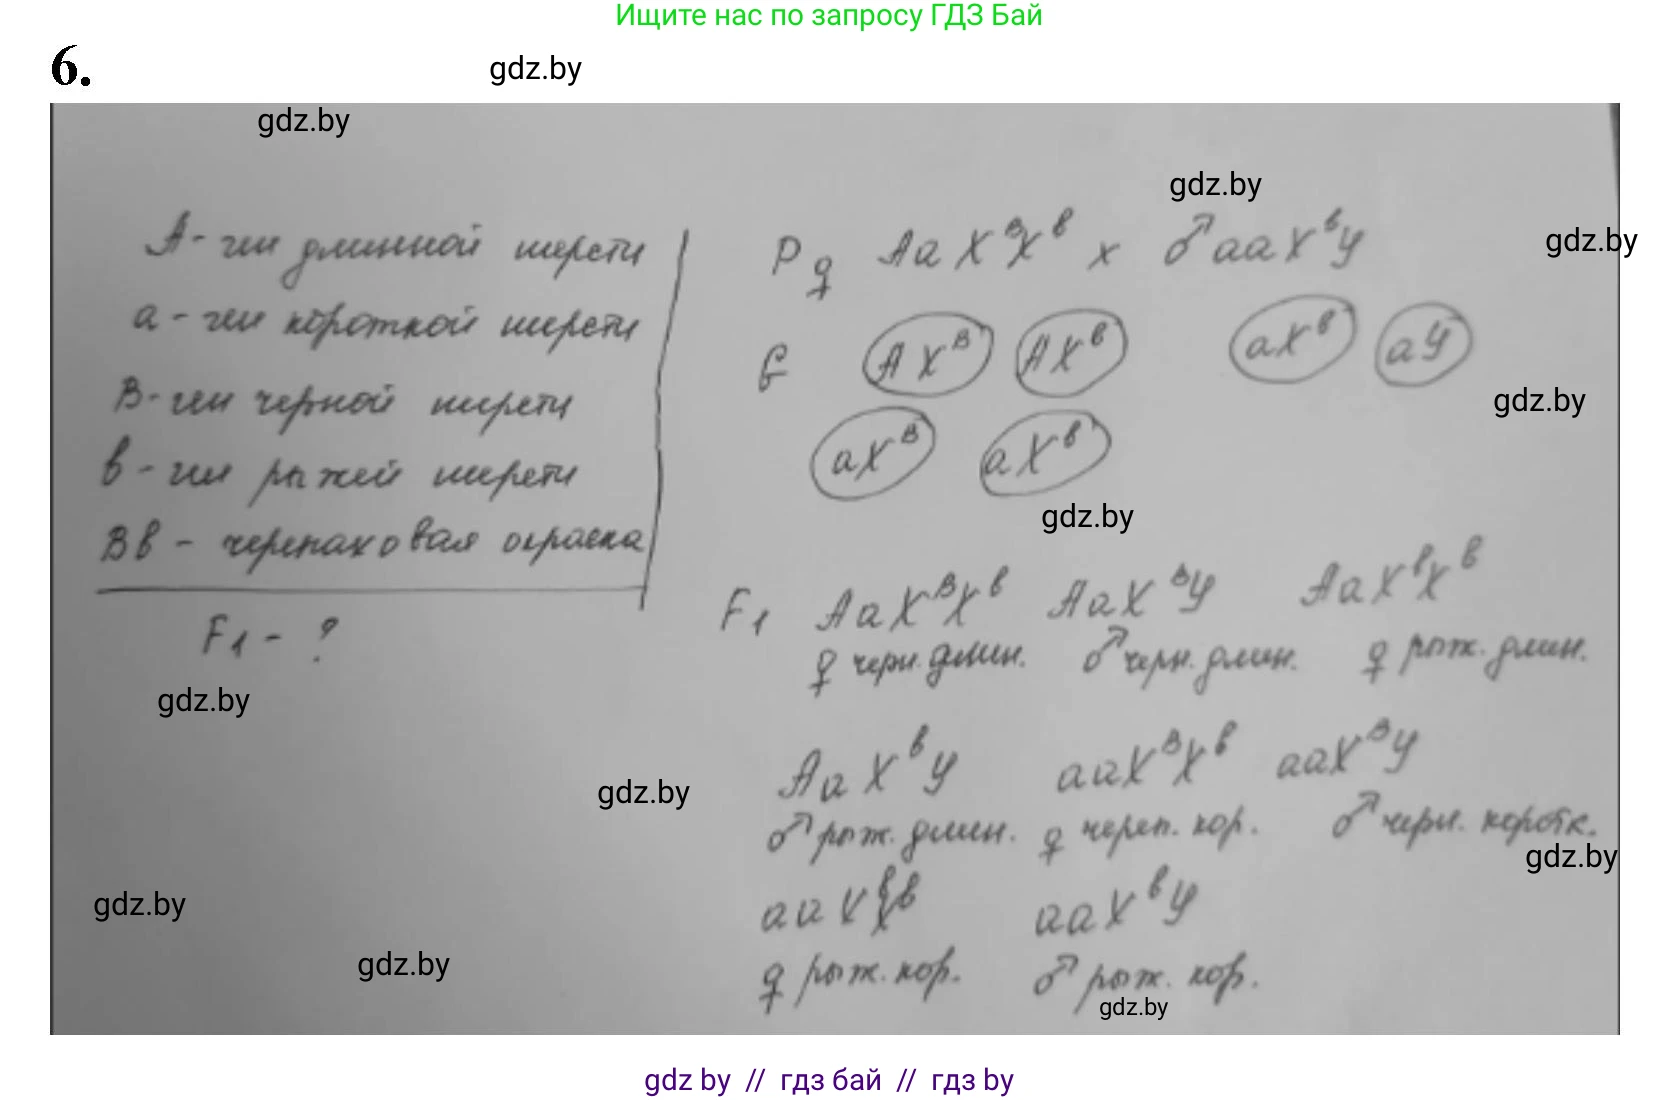 Ищите нас по запросу ГДЗ Бай
6.
gdz.by
gdz.by
gdz.by
gdz.by
А - ген длинной шерсти
P ♀ Aa X^B X^b x ♂ aa X^b Y
а - ген короткой шерсти
G AX^B AX^b aX^b aY
B - ген черной шерсти
gdz.by
aX^B aX^b
в - ген рыжей шерсти
gdz.by
Bb - черепаховая окраска
F1 AaX^BX^b AaX^BY AaX^bX^b
F1 - ?
♀ черн. длин. ♂ черн. длин. ♀ рыж. длин.
gdz.by
AaX^bY aaX^BX^b aaX^BY
gdz.by
♂ рыж. длин. ♀ череп. кор. ♂ черн. коротк.
gdz.by
aaX^bX^b aaX^bY
gdz.by
gdz.by
♀ рыж. кор. ♂ рыж. кор.
gdz.by
gdz by // гдз бай // гдз by